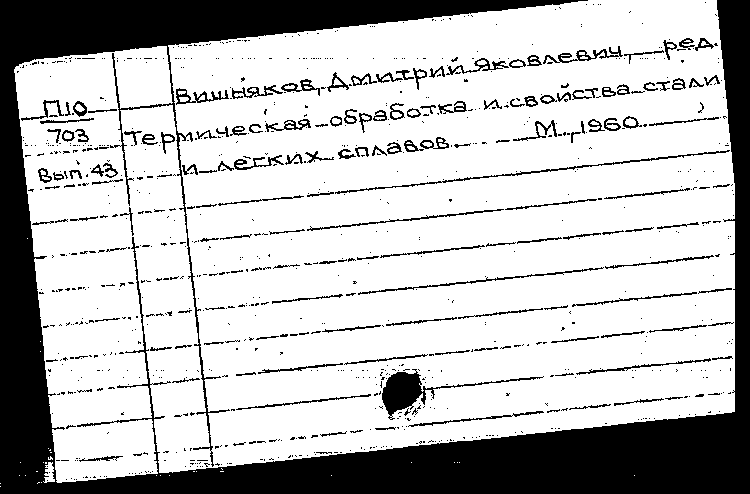 П10
703
Вып. 43
Вишняков, Дмитрий Яковлевич, ред.
Термическая обработка и свойства стали
и легких сплавов. М., 1960.